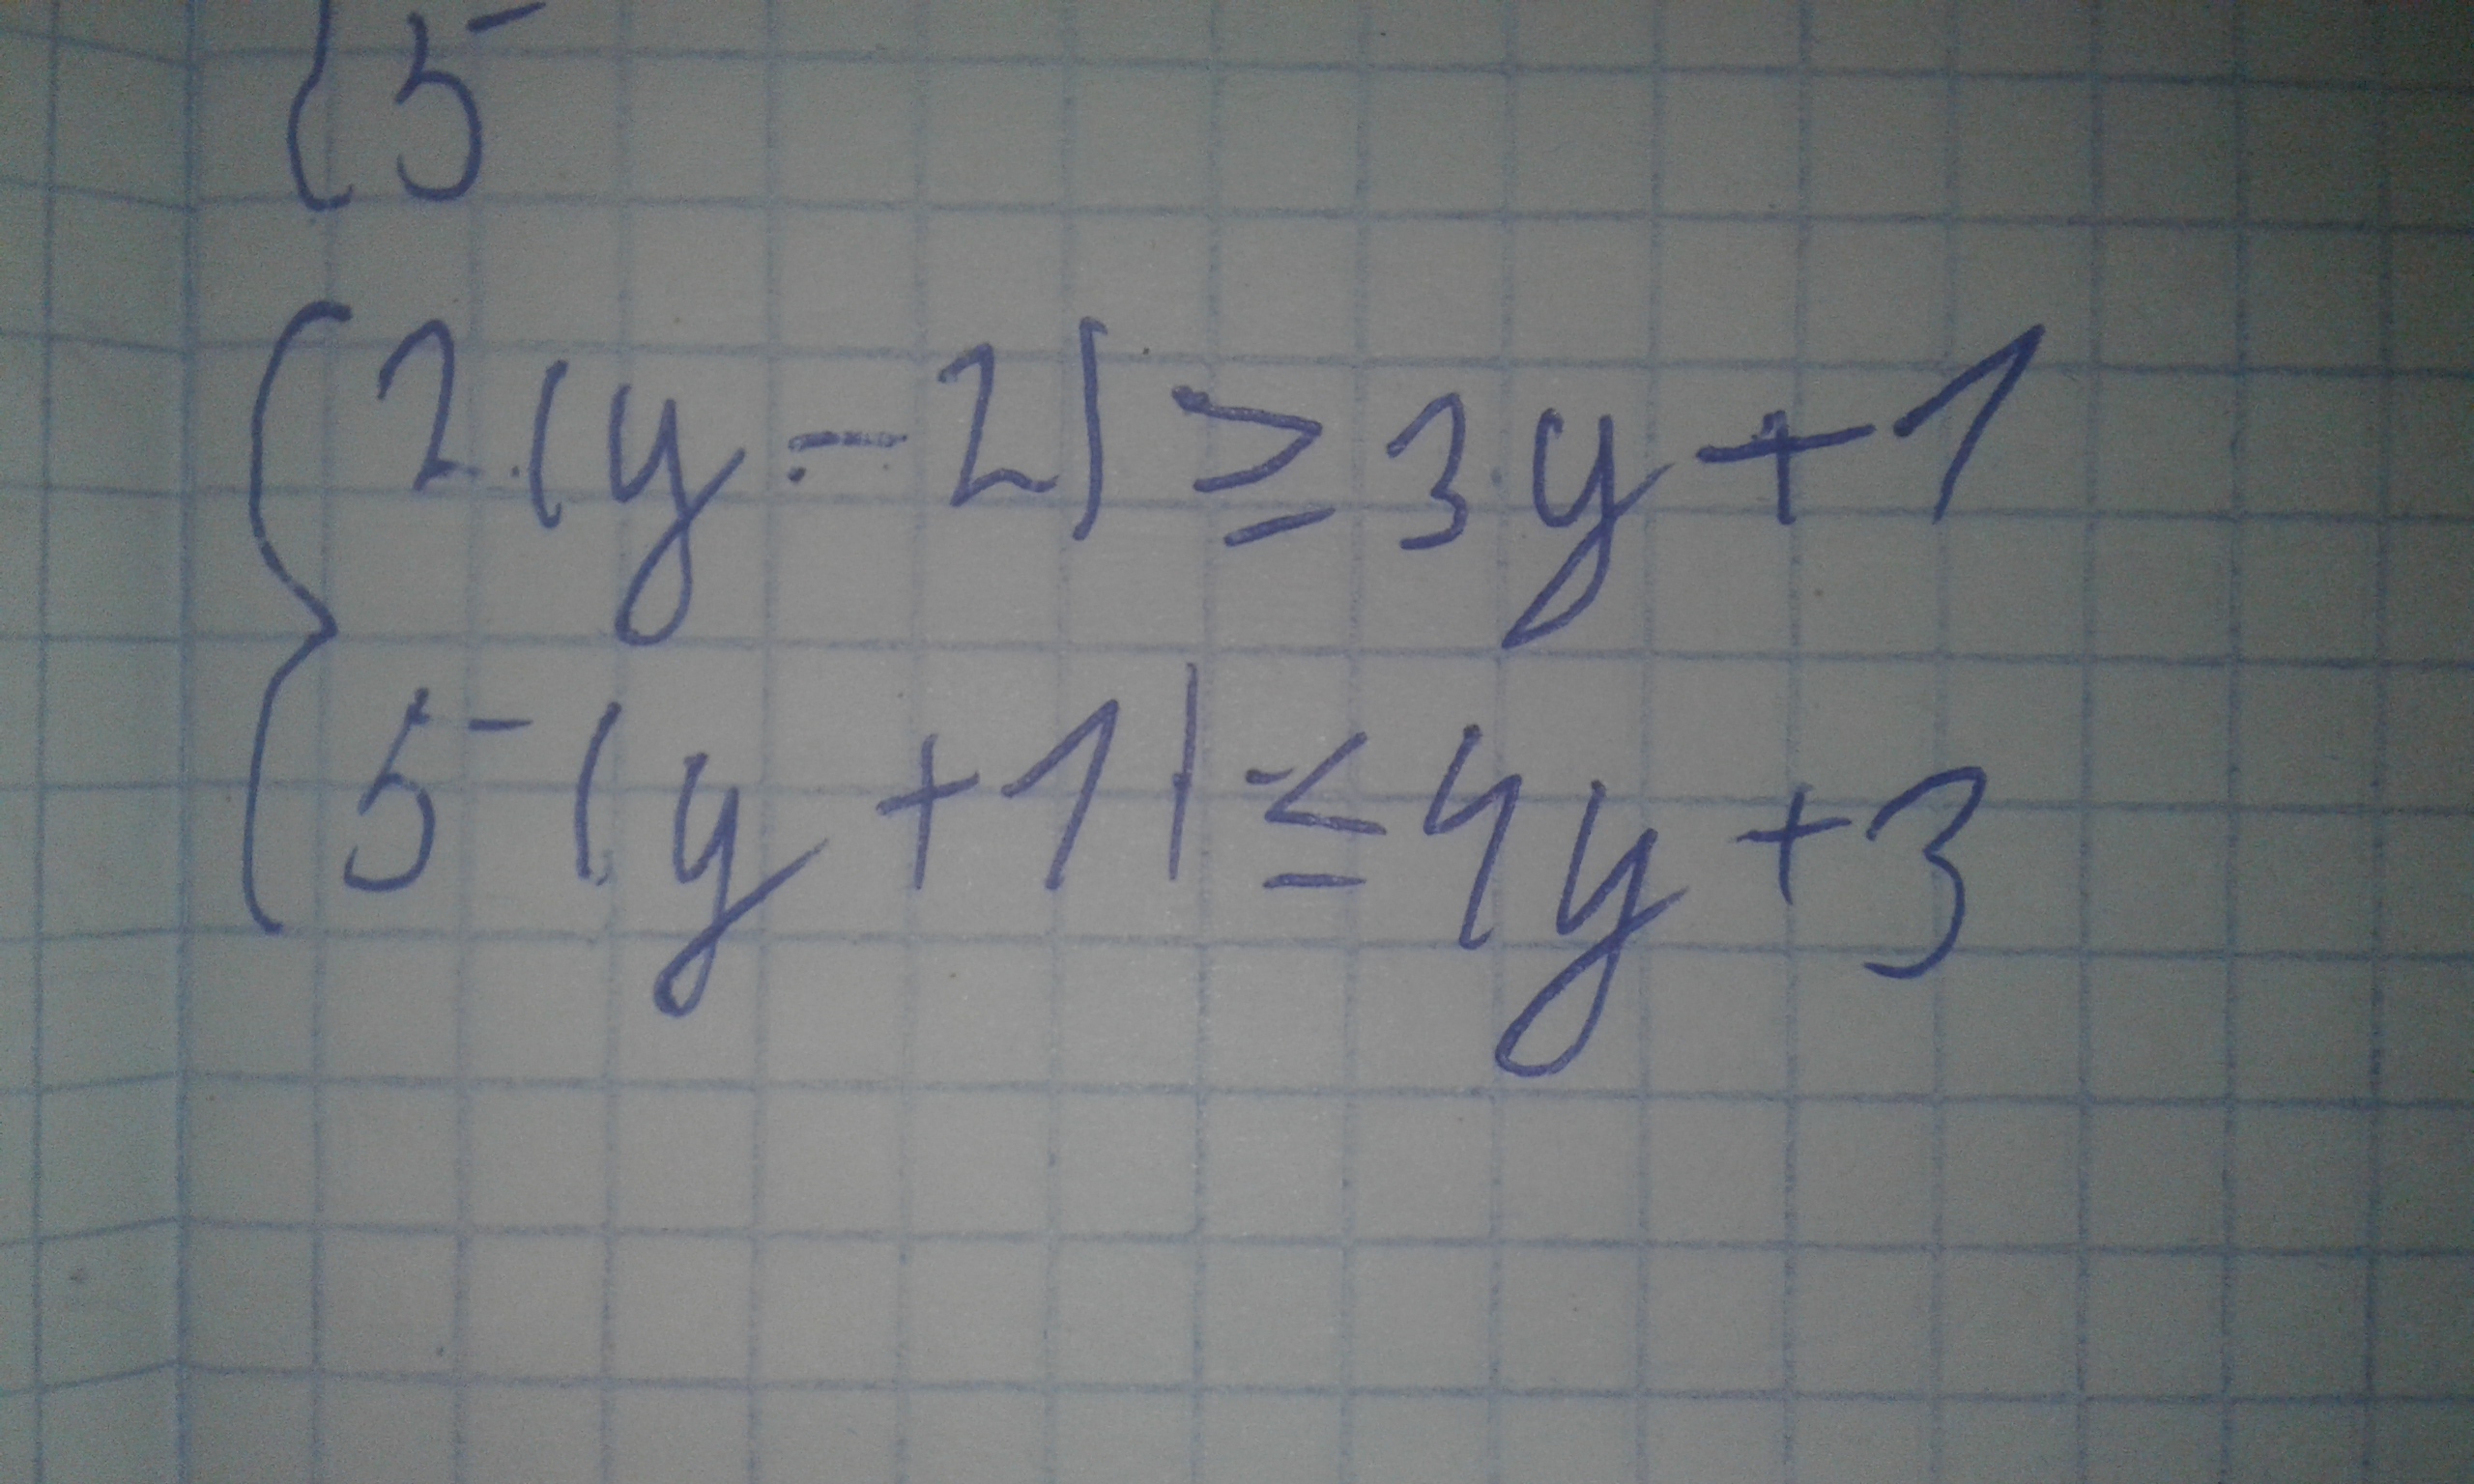 {5
{2(y-2) ≥ 3y+1
5(y+1) ≤ 4y+3